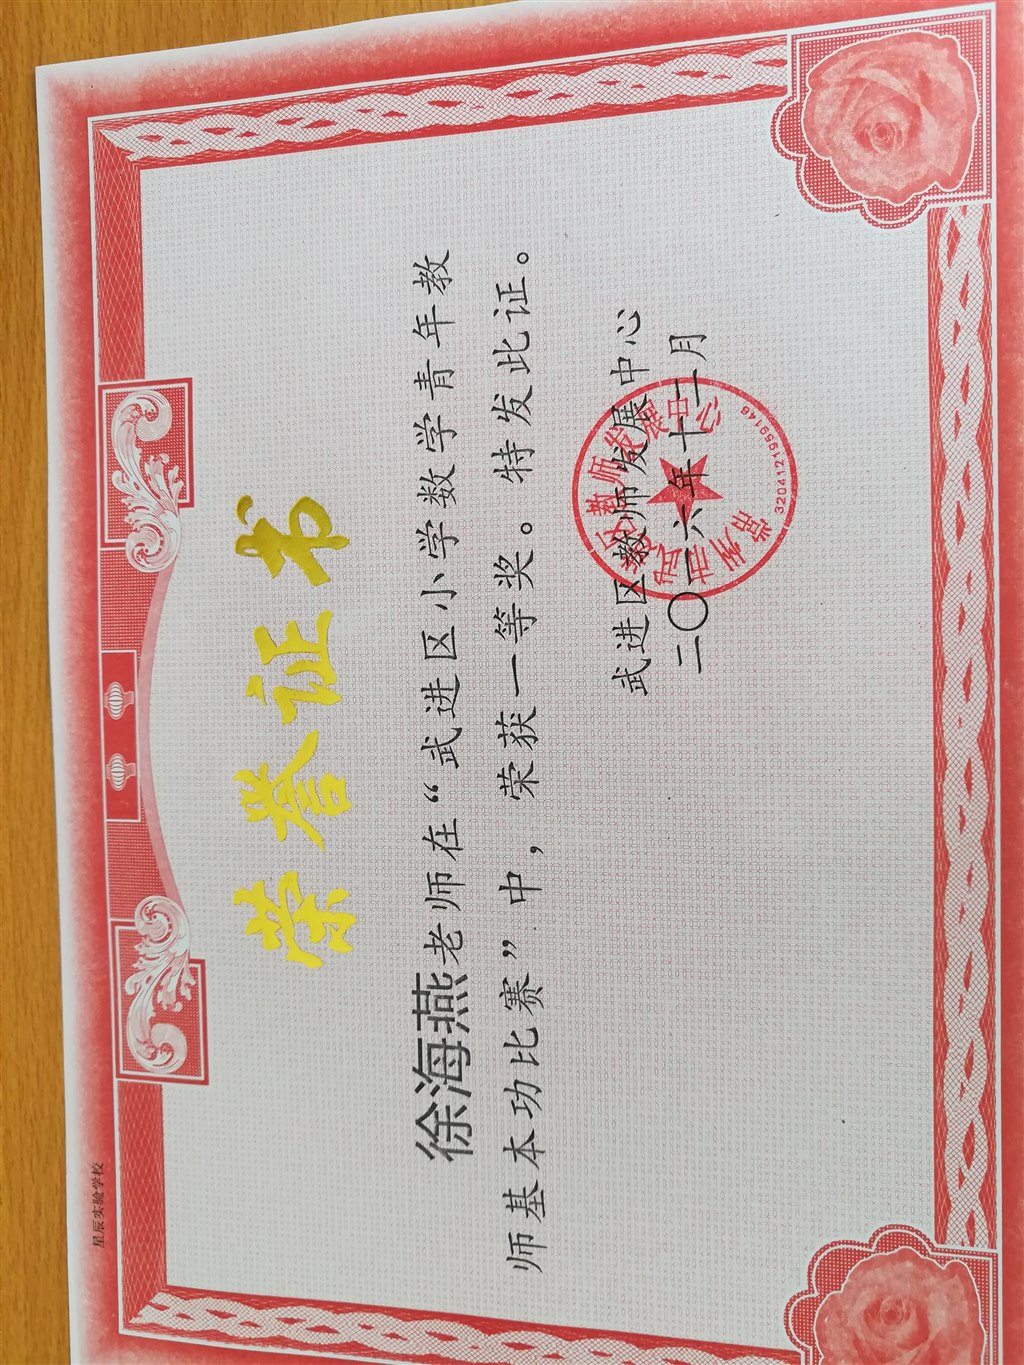 星辰实验学校
荣誉证书
徐海燕老师在“武进区小学数学青年教
师基本功比赛”中，荣获一等奖。特发此证。
武进区教师发展中心
二〇一六年十二月
常州市武进区教师发展中心
3204121959146